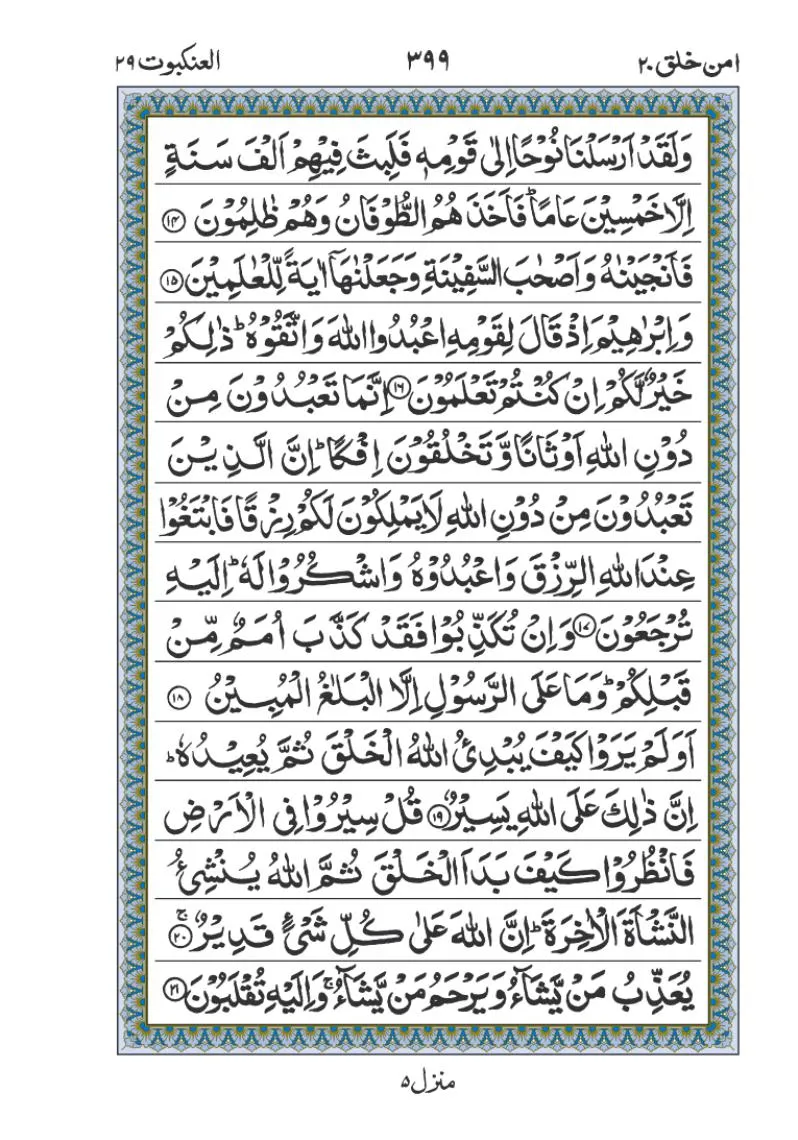 امن خلق ۲۰ ۳۹۹ العنکبوت ۲۹
وَلَقَدْ اَرْسَلْنَا نُوْحًا اِلٰى قَوْمِهٖ فَلَبِثَ فِيْهِمْ اَلْفَ سَنَةٍ
اِلَّا خَمْسِيْنَ عَامًا ؕ فَاَخَذَهُمُ الطُّوْفَانُ وَهُمْ ظٰلِمُوْنَ ﴿۱۴﴾
فَاَنْجَيْنٰهُ وَاَصْحٰبَ السَّفِيْنَةِ وَجَعَلْنٰهَاۤ اٰيَةً لِّلْعٰلَمِيْنَ ﴿۱۵﴾
وَاِبْرٰهِيْمَ اِذْ قَالَ لِقَوْمِهِ اعْبُدُوا اللّٰهَ وَاتَّقُوْهُ ؕ ذٰلِكُمْ
خَيْرٌ لَّكُمْ اِنْ كُنْتُمْ تَعْلَمُوْنَ ﴿۱۶﴾ اِنَّمَا تَعْبُدُوْنَ مِنْ
دُوْنِ اللّٰهِ اَوْثَانًا وَّتَخْلُقُوْنَ اِفْكًا ؕ اِنَّ الَّذِيْنَ
تَعْبُدُوْنَ مِنْ دُوْنِ اللّٰهِ لَا يَمْلِكُوْنَ لَكُمْ رِزْقًا فَابْتَغُوْا
عِنْدَ اللّٰهِ الرِّزْقَ وَاعْبُدُوْهُ وَاشْكُرُوْا لَهٗ ؕ اِلَيْهِ
تُرْجَعُوْنَ ﴿۱۷﴾ وَاِنْ تُكَذِّبُوْا فَقَدْ كَذَّبَ اُمَمٌ مِّنْ
قَبْلِكُمْ ؕ وَمَا عَلَى الرَّسُوْلِ اِلَّا الْبَلٰغُ الْمُبِيْنُ ﴿۱۸﴾
اَوَلَمْ يَرَوْا كَيْفَ يُبْدِئُ اللّٰهُ الْخَلْقَ ثُمَّ يُعِيْدُهٗ ؕ
اِنَّ ذٰلِكَ عَلَى اللّٰهِ يَسِيْرٌ ﴿۱۹﴾ قُلْ سِيْرُوْا فِى الْاَرْضِ
فَانْظُرُوْا كَيْفَ بَدَاَ الْخَلْقَ ثُمَّ اللّٰهُ يُنْشِئُ
النَّشْاَةَ الْاٰخِرَةَ ؕ اِنَّ اللّٰهَ عَلٰى كُلِّ شَىْءٍ قَدِيْرٌ ۚ ﴿۲۰﴾
يُعَذِّبُ مَنْ يَّشَآءُ وَيَرْحَمُ مَنْ يَّشَآءُ ۚ وَاِلَيْهِ تُقْلَبُوْنَ ﴿۲۱﴾
منزل ۵